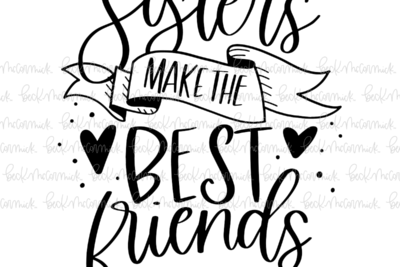 Sisters
MAKE THE
BEST
friends